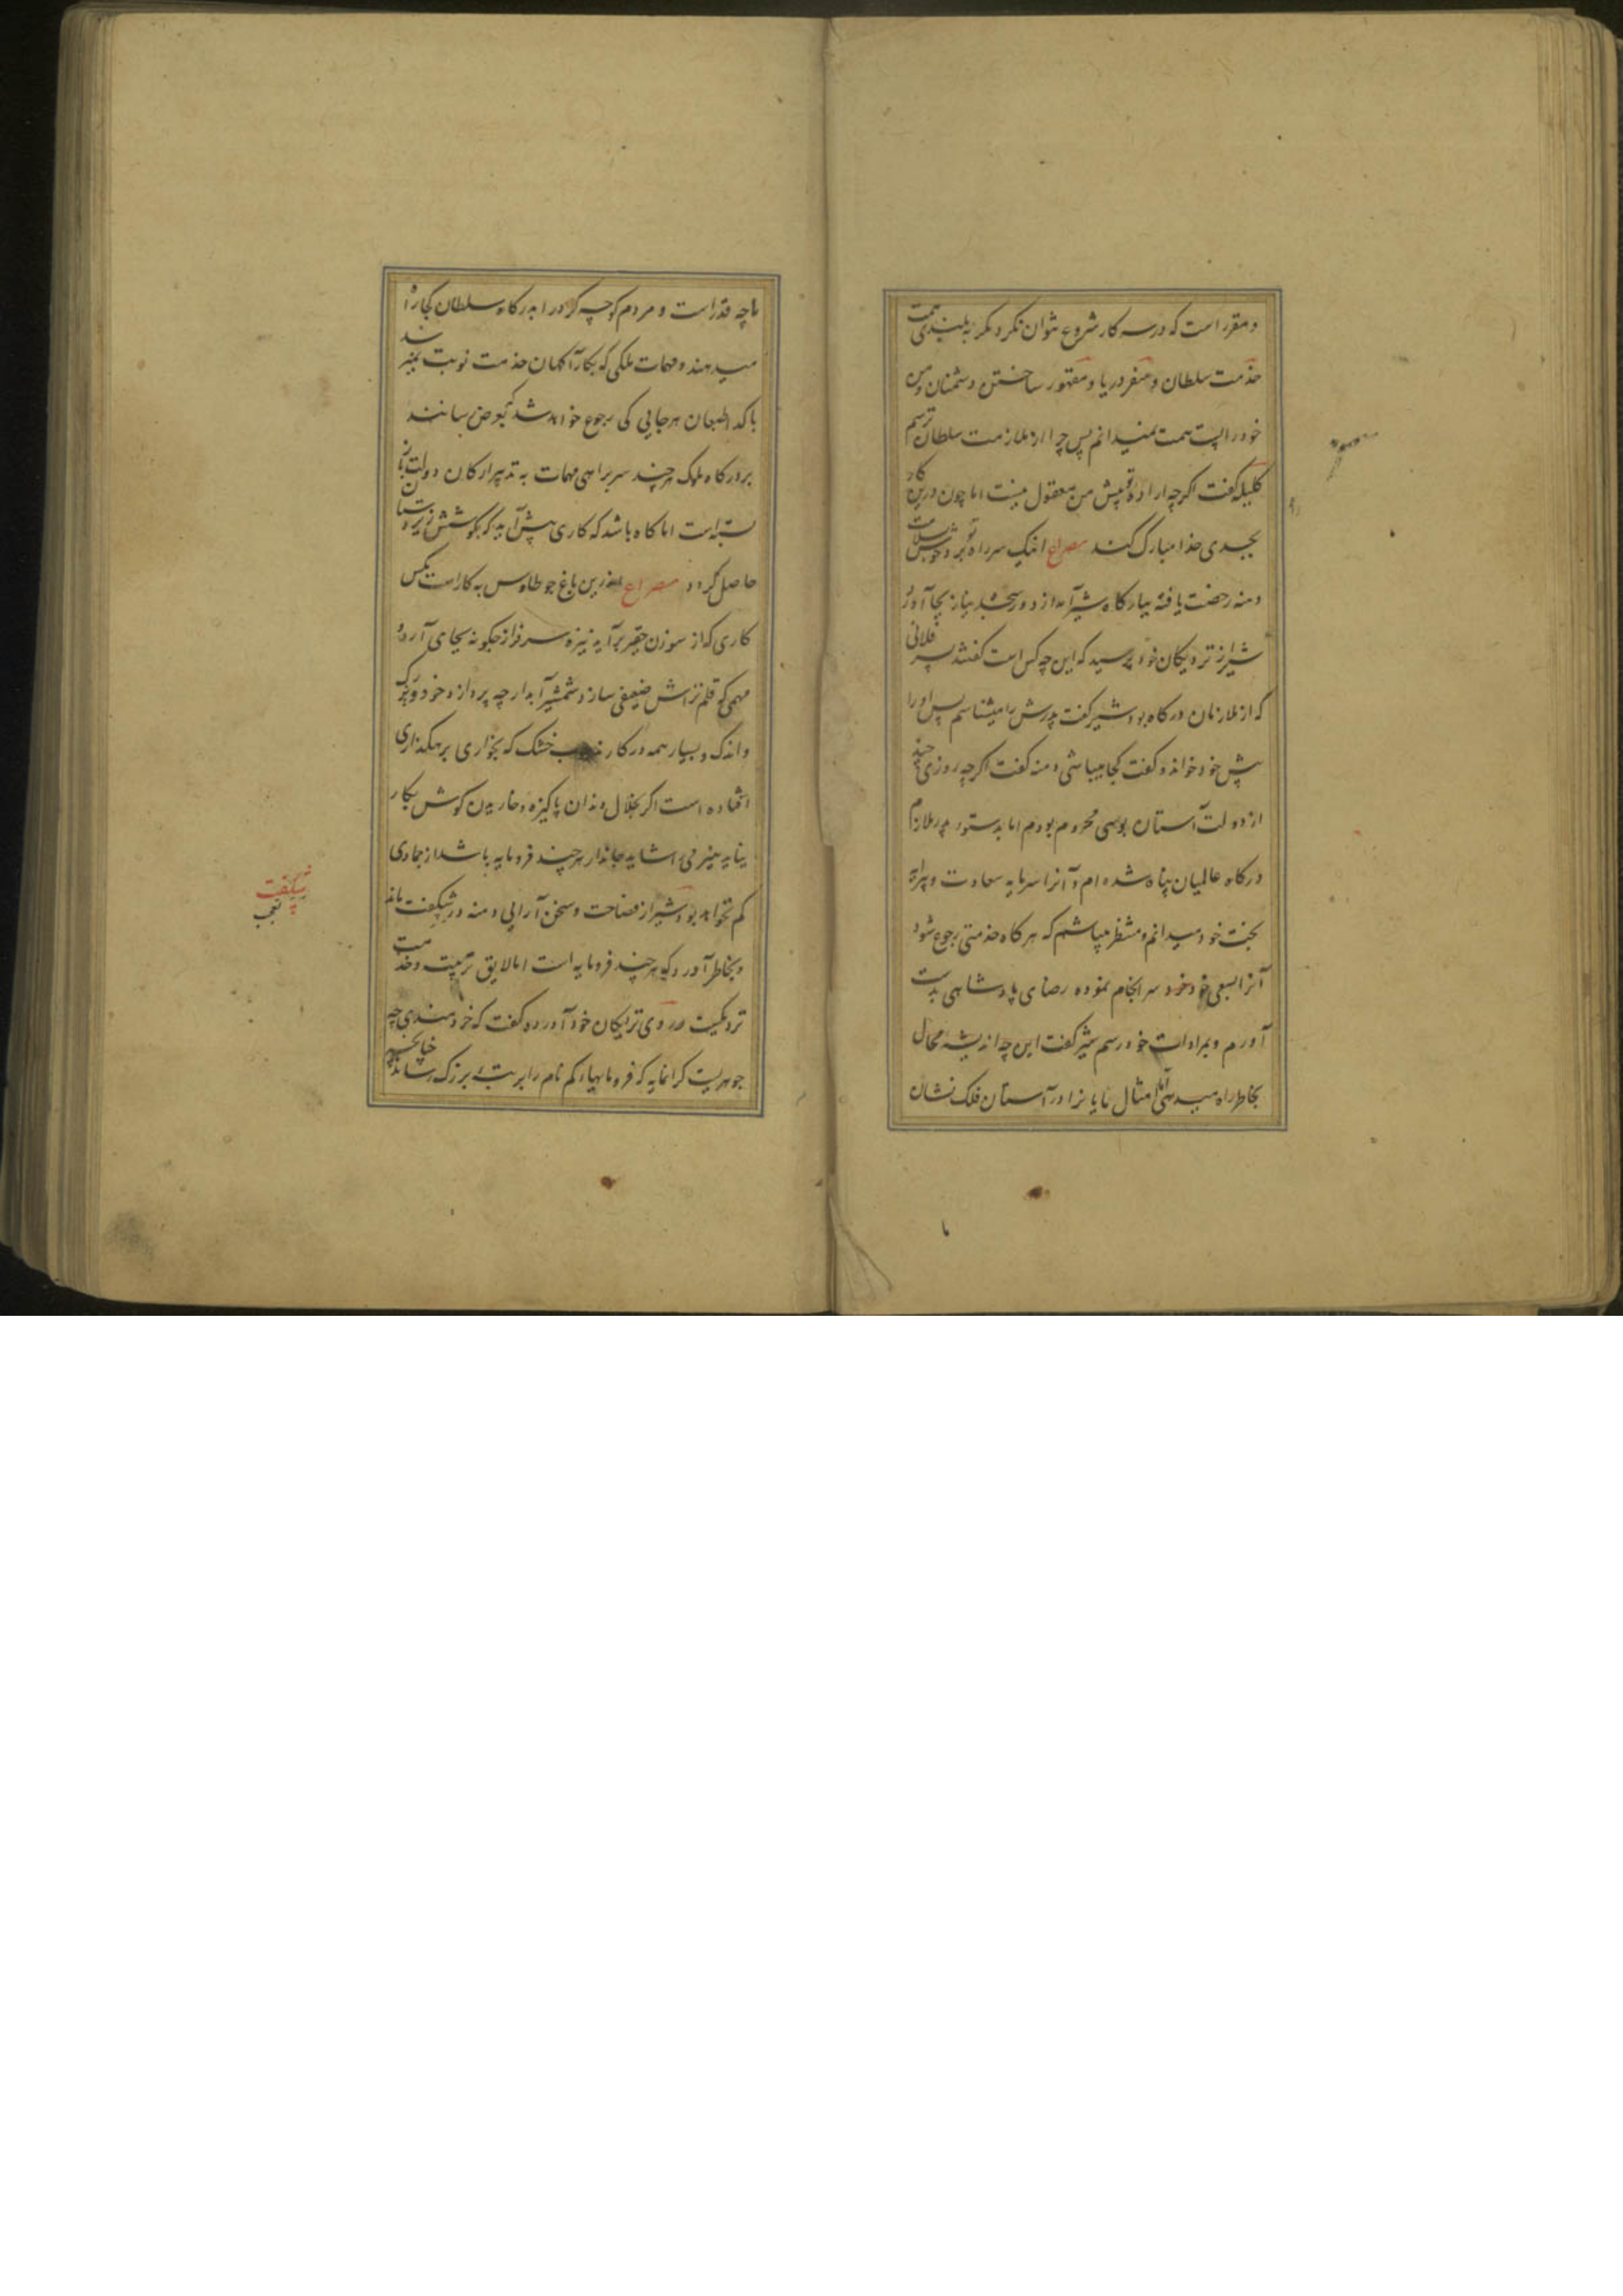 و مقرر است که در سه کار شروع نتوان نکرد مگر به بلندی همت
خدمت سلطان و سفر دریا و مقهور ساختن دشمنان و من
خود را پست همت نمیدانم پس چرا از ملازمت سلطان ترسم
کلیله گفت اگرچه اراده تو پیش من معقول نیست اما چون درین کار
بجدی خدا مبارک کند مصراع اینک سر راه تو برو خوش بسلامت
دمنه رخصت یافته ببارگاه شیر آمد از دور سجده نیاز بجا آورد
شیر از نزدیکان خود پرسید که این چه کس است گفتند پسر فلانی
که از ملازمان درگاه بود شیر گفت پدرش را میشناسم پس او را
پیش خود خواند و گفت کجا میباشی دمنه گفت اگرچه روزی چند
از دولت آستان بوسی محروم بودم اما بدستور پدر ملازم
درگاه عالمیان پناه شده ام و آنرا سرمایه سعادت و پیرایه
بخت خود میدانم و منتظر میباشم که هرگاه خدمتی رجوع شود
آنرا بسعی خود سرانجام نموده رضای پادشاهی بدست
آورم و بمرادات خود رسم شیر گفت این چه اندیشه محال
بخاطر راه میدهی امثال مایانرا در آستان فلک نشان
ما چه قدر است و مردم کوچه گرد را بدرگاه سلطان کجا راه
میدهند و مهمات ملکی که بکارآگهان خدمت نوبت نمیرسد
با گدا طبعان هرجایی کی رجوع خواهد شد بعرض رسانند
بر درگاه ملوک هرچند سربراهی مهمات به تدبیر ارکان دولت باز
بسته است اما گاه باشد که کاری پیش آید که بکوشش زیردستان
حاصل گردد مصراع اندرین باغ چو طاوس به کار است مگس
کاری که از سوزن حقیر برآید نیزه سرفراز چگونه بجای آرد و
مهمی که قلم تراش ضعیفی سازد شمشیر آبدار چه پردازد خود بزرگ
و اندک و بسیار همه در کار خشک که بخواری برهگذاری
افتاده است اگر بخلال دندان پاکیزه و خاریدن گوش بکار
نیاید هیزم را شاید جاندار هرچند فرومایه باشد از جمادی
کم نخواهد بود شیر از فصاحت و سخن آرایی دمنه در شگفت ماند
و بخاطر آورد که هرچند فرومایه است اما لایق تربیت و خدمت
نزدیکیست رو سوی نزدیکان خود آورده گفت که خردمندی چه
جوهریست گرانمایه که فرومایهای کم نام را بمرتبه بزرگ رساند چنانچه
شگفت
تعجب